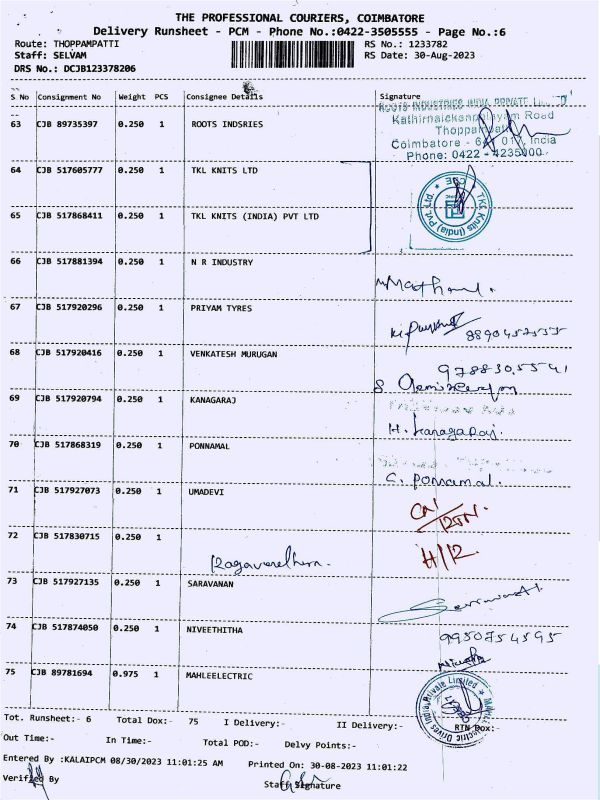 THE PROFESSIONAL COURIERS, COIMBATORE
Delivery Runsheet - PCM - Phone No.:0422-3505555 - Page No.:6
Route: THOPPAMPATTI
RS No.: 1233782
Staff: SELVAM
RS Date: 30-Aug-2023
DRS No.: DCJB123378206
S No Consignment No Weight PCS Consignee Details Signature
ROOTS INDUSTRIES INDIA PRIVATE
63 CJB 89735397 0.250 1 ROOTS INDSRIES
Kathirnaickenpalayam Road
Thoppampatti
Coimbatore - India
Phone: 0422 - 4235000
64 CJB 517605777 0.250 1 TKL KNITS LTD
65 CJB 517868411 0.250 1 TKL KNITS (INDIA) PVT LTD
TKL Knits (India) Pvt. Ltd. CBE
66 CJB 517881394 0.250 1 N R INDUSTRY
67 CJB 517920296 0.250 1 PRIYAM TYRES
8890452555
68 CJB 517920416 0.250 1 VENKATESH MURUGAN
9788305541
69 CJB 517920794 0.250 1 KANAGARAJ
H. Kanagaraj.
70 CJB 517868319 0.250 1 PONNAMAL
C. Ponnamal.
71 CJB 517927073 0.250 1 UMADEVI
72 CJB 517830715 0.250 1
73 CJB 517927135 0.250 1 SARAVANAN
74 CJB 517874050 0.250 1 NIVEETHITHA
9950754595
75 CJB 89781694 0.975 1 MAHLEELECTRIC
Electric Drives India Private Limited
Tot. Runsheet:- 6 Total Dox:- 75 I Delivery:- II Delivery:- RTN Dox:-
Out Time:- In Time:- Total POD:- Delvy Points:-
Entered By :KALAIPCM 08/30/2023 11:01:25 AM Printed On: 30-08-2023 11:01:22
Verified By Staff Signature